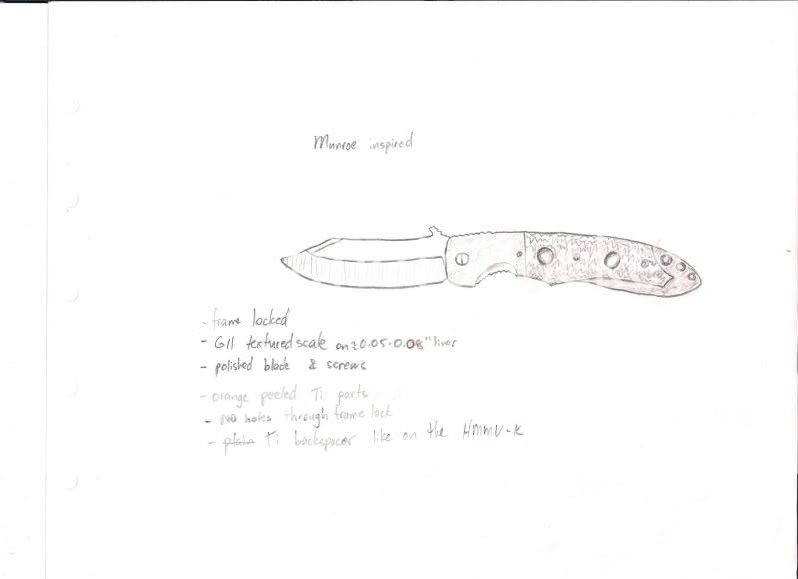 Munroe inspired
- frame locked
- G11 textured scale on ≈0.05-0.08" liner
- polished blade & screws
- orange peeled Ti parts
- No holes through frame lock
- plain Ti backspacer like on the HMMV-K